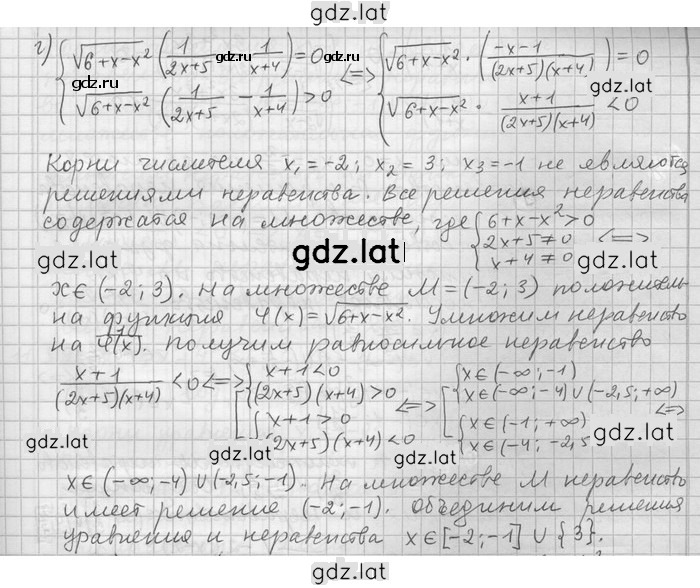 gdz.lat
г) { √(6+x−x²) (1/(2x+5) − 1/(x+4)) = 0 <=> { √(6+x−x²) · ((−x−1)/((2x+5)(x+4))) = 0
√(6+x−x²) (1/(2x+5) − 1/(x+4)) > 0 √(6+x−x²) · (x+1)/((2x+5)(x+4)) < 0
gdz.lat gdz.lat
gdz.lat gdz.lat
Корни числителя x₁=−2; x₂=3; x₃=−1 не являются
решениями неравенства. Все решения неравенства
содержатся на множестве, где { 6+x−x²>0
2x+5≠0 <=>
x+4≠0
gdz.lat gdz.lat gdz.lat
x∈(−2; 3). На множестве M=(−2; 3) положитель-
на функция φ(x)=√(6+x−x²). Умножим неравенство
на 1/φ(x). Получим равносильное неравенство
gdz.lat gdz.lat
(x+1)/((2x+5)(x+4)) < 0 <=> [ { x+1<0 <=> [ { x∈(−∞; −1)
(2x+5)(x+4)>0 x∈(−∞; −4)∪(−2,5; +∞)
{ x+1>0 { x∈(−1; +∞) <=>
2x+5)(x+4)<0 x∈(−4; −2,5
gdz.lat gdz.lat gdz.lat
x∈(−∞; −4)∪(−2,5; −1). На множестве M неравенство
имеет решение (−2; −1). Объединим решения
уравнения и неравенства x∈[−2; −1]∪{3}.
gdz.lat gdz.lat
gdz.lat